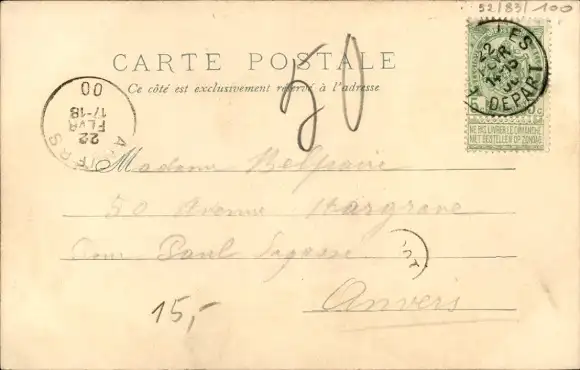 52/83/100
CARTE POSTALE
Ce côté est exclusivement réservé à l'adresse
50
LES
22
DEPART
NE PAS LIVRER LE DIMANCHE
NIET BESTELLEN OP ZONDAG
ANVERS
22
FEVR
17-18
00
Madame Belpaire
50 Avenue Margrave
Pour Paul
Anvers
15,-